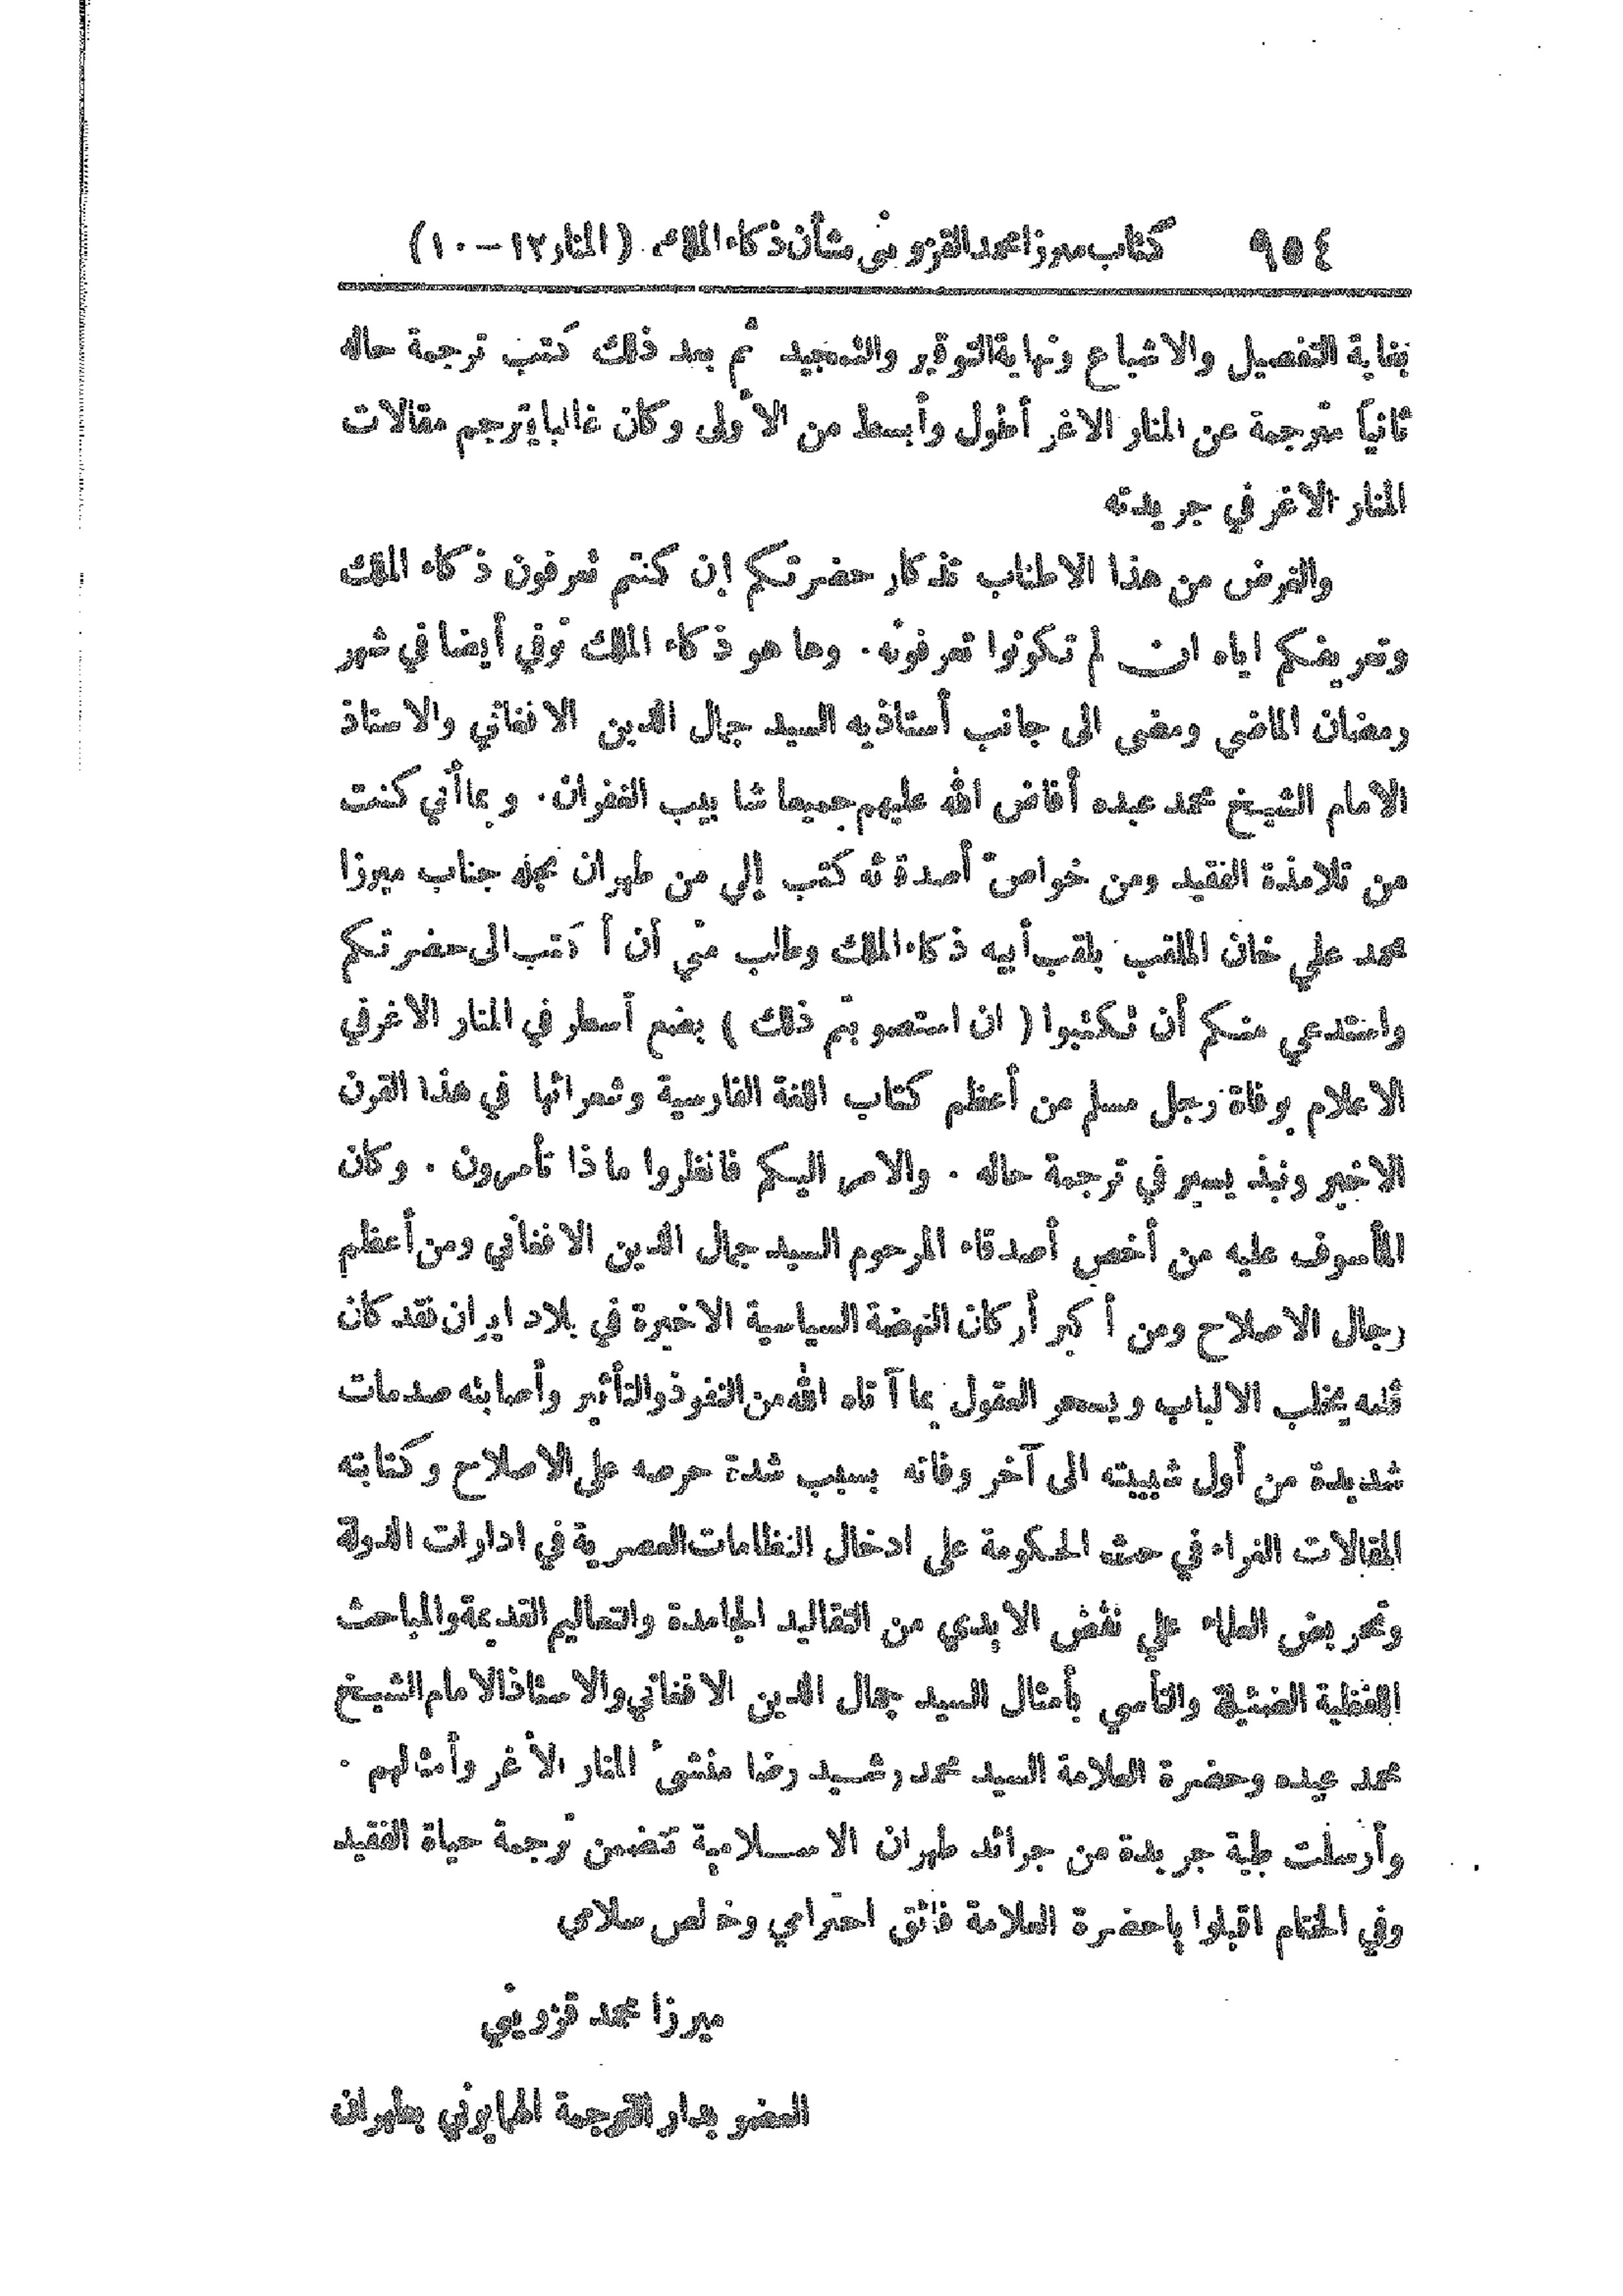 ٩٥٤ كتاب ميرزا محمد القزويني بشأن ذكاء الملك (المنار ١٢ــ١٠)
بغاية التفصيل والاشباع ونهاية التوقير والتمجيد ثم بعد ذلك كتب ترجمة حاله
ثانياً مترجمة عن المنار الاغر أطول وأبسط من الأولى وكان غالبا يترجم مقالات
المنار الاغر في جريدته
والغرض من هذا الاطناب تذكار حضرتكم إن كنتم تعرفون ذكاء الملك
وتعريفكم اياه ان لم تكونوا تعرفونه. وها هو ذكاء الملك توفي أيضا في شهر
رمضان الماضي ومضى الى جانب أستاذيه السيد جمال الدين الافغاني والاستاذ
الامام الشيخ محمد عبده أفاض الله عليهم جميعا شآبيب الغفران. وبما أني كنت
من تلامذة الفقيد ومن خواصّ أصدقائه كتب إلي من طهران نجله جناب ميرزا
محمد علي خان الملقب بلقب أبيه ذكاء الملك وطلب مني أن أكتب الى حضرتكم
واستدعي منكم أن تكتبوا ( ان استصوبتم ذلك ) بضع أسطر في المنار الاغر في
الاعلام بوفاة رجل مسلم من أعظم كتاب اللغة الفارسية وشعرائها في هذا القرن
الاخير ونبذ يسير في ترجمة حاله . والامر اليكم فانظروا ماذا تأمرون . وكان
المأسوف عليه من أخص أصدقاء المرحوم السيد جمال الدين الافغاني ومن أعظم
رجال الاصلاح ومن أكبر أركان النهضة السياسية الاخيرة في بلاد ايران فقد كان
قلمه يخلب الالباب ويسحر العقول بما آتاه الله من النفوذ والتأثير وأصابته صدمات
شديدة من أول شبيبته الى آخر وفاته بسبب شدة حرصه على الاصلاح وكتابته
المقالات الغراء في حث الحكومة على ادخال النظامات العصرية في ادارات الدولة
وتحريض العلماء علي نفض الايدي من التقاليد الجامدة والتعاليم القديمة والمباحث
اللفظية الضئيلة والتأسي بأمثال السيد جمال الدين الافغاني والاستاذ الامام الشيخ
محمد عبده وحضرة العلامة السيد محمد رشيد رضا منشئ المنار الأغر وأمثالهم .
وأرسلت طية جريدة من جرائد طهران الاسلامية تتضمن ترجمة حياة الفقيد
وفي الختام اقبلوا ياحضرة العلامة فائق احترامي وخالص سلامي
ميرزا محمد قزويني
العضو بدار الترجمة الهمايوني بطهران